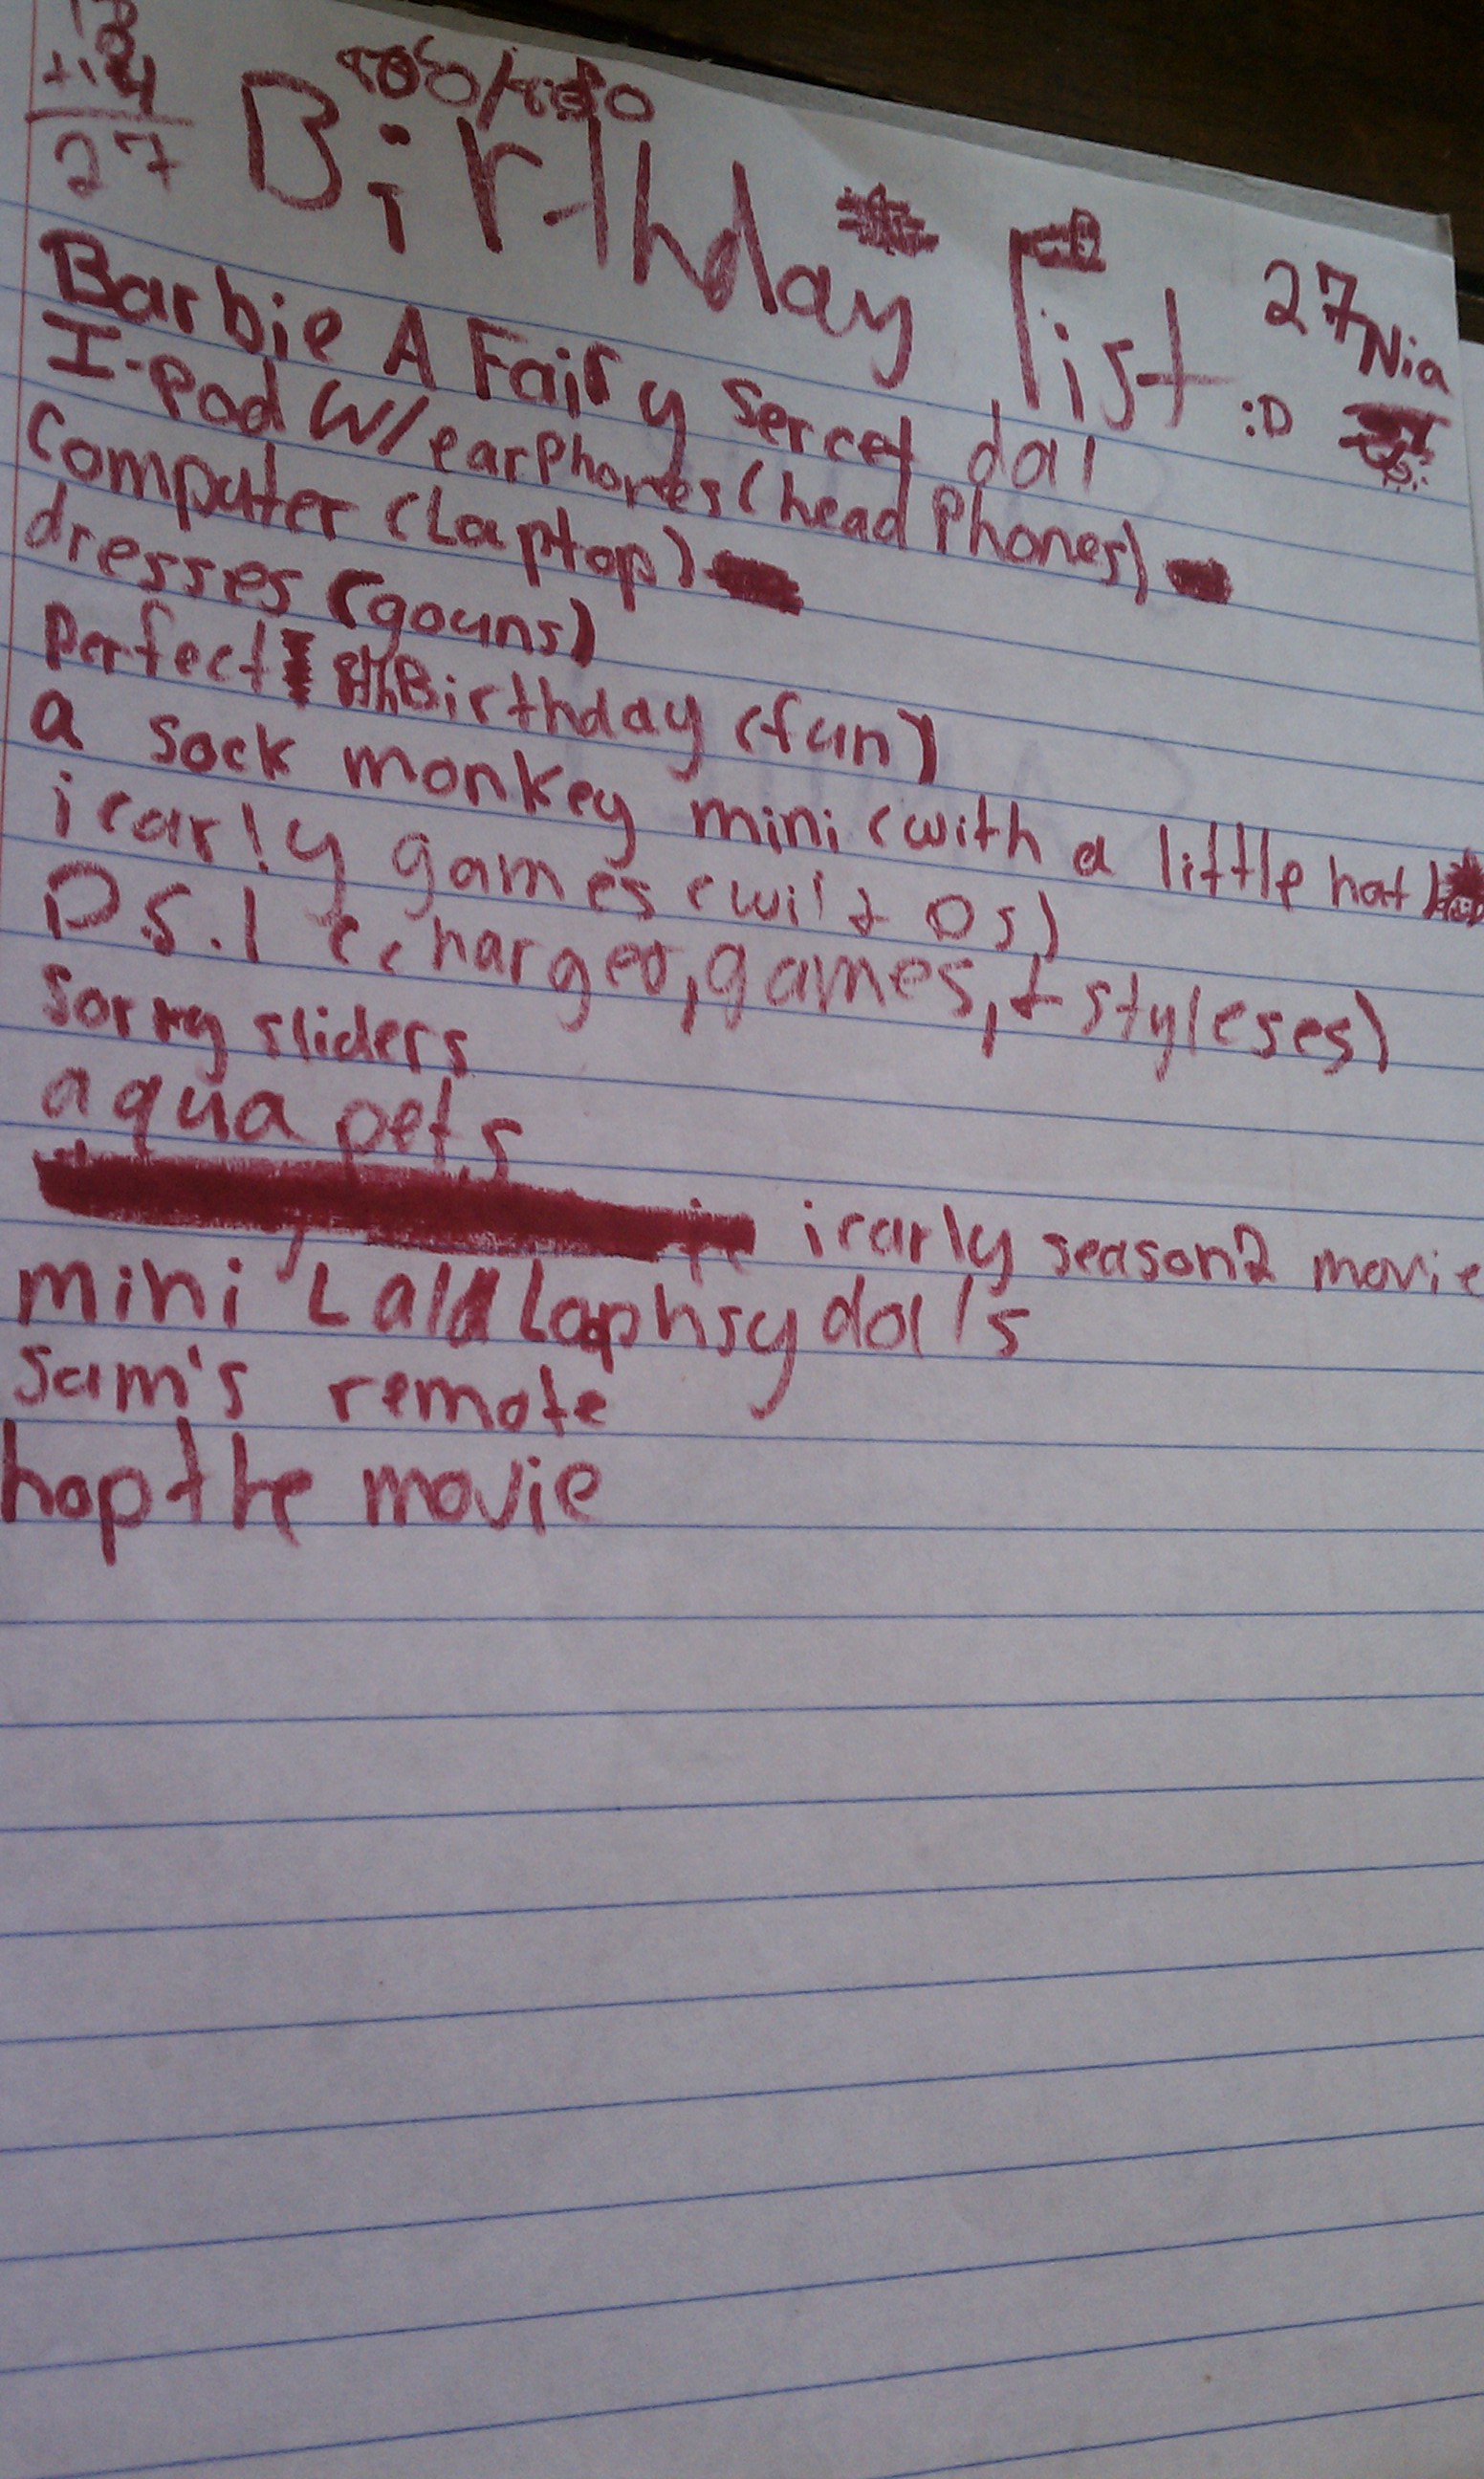 27
Birthday List :D 27 Nia
Barbie A Fairy Sercet dol
I-Pod W/earphones (head Phones)
Computer (Laptop)
dresses (gouns)
Perfect Birthday (fun)
a sock monkey mini (with a little hat)
icarly games (wii + Ds)
D.S.I (charger, games, + styleses)
Sorry sliders
aqua pets
icarly season2 movie
mini Lala Laphsy dolls
Sam's remote
hop the movie